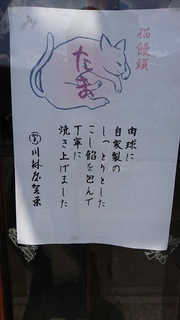 猫饅頭
たま
肉球に
自家製の
しっとりとした
こし餡を包んで
丁寧に
焼き上げました
川林屋賀菓